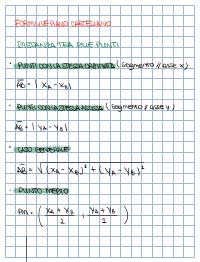 FORMULE PIANO CARTESIANO
DISTANZA TRA DUE PUNTI
• PUNTI CON LA STESSA ORDINATA (segmento // asse x)
AB = | xA - xB |
• PUNTI CON LA STESSA ASCISSA (segmento // asse y)
AB = | yA - yB |
• CASO GENERALE
AB = √(xA - xB)² + (yA - yB)²
• PUNTO MEDIO
PM = ( xA + xB / 2 ; yA + yB / 2 )